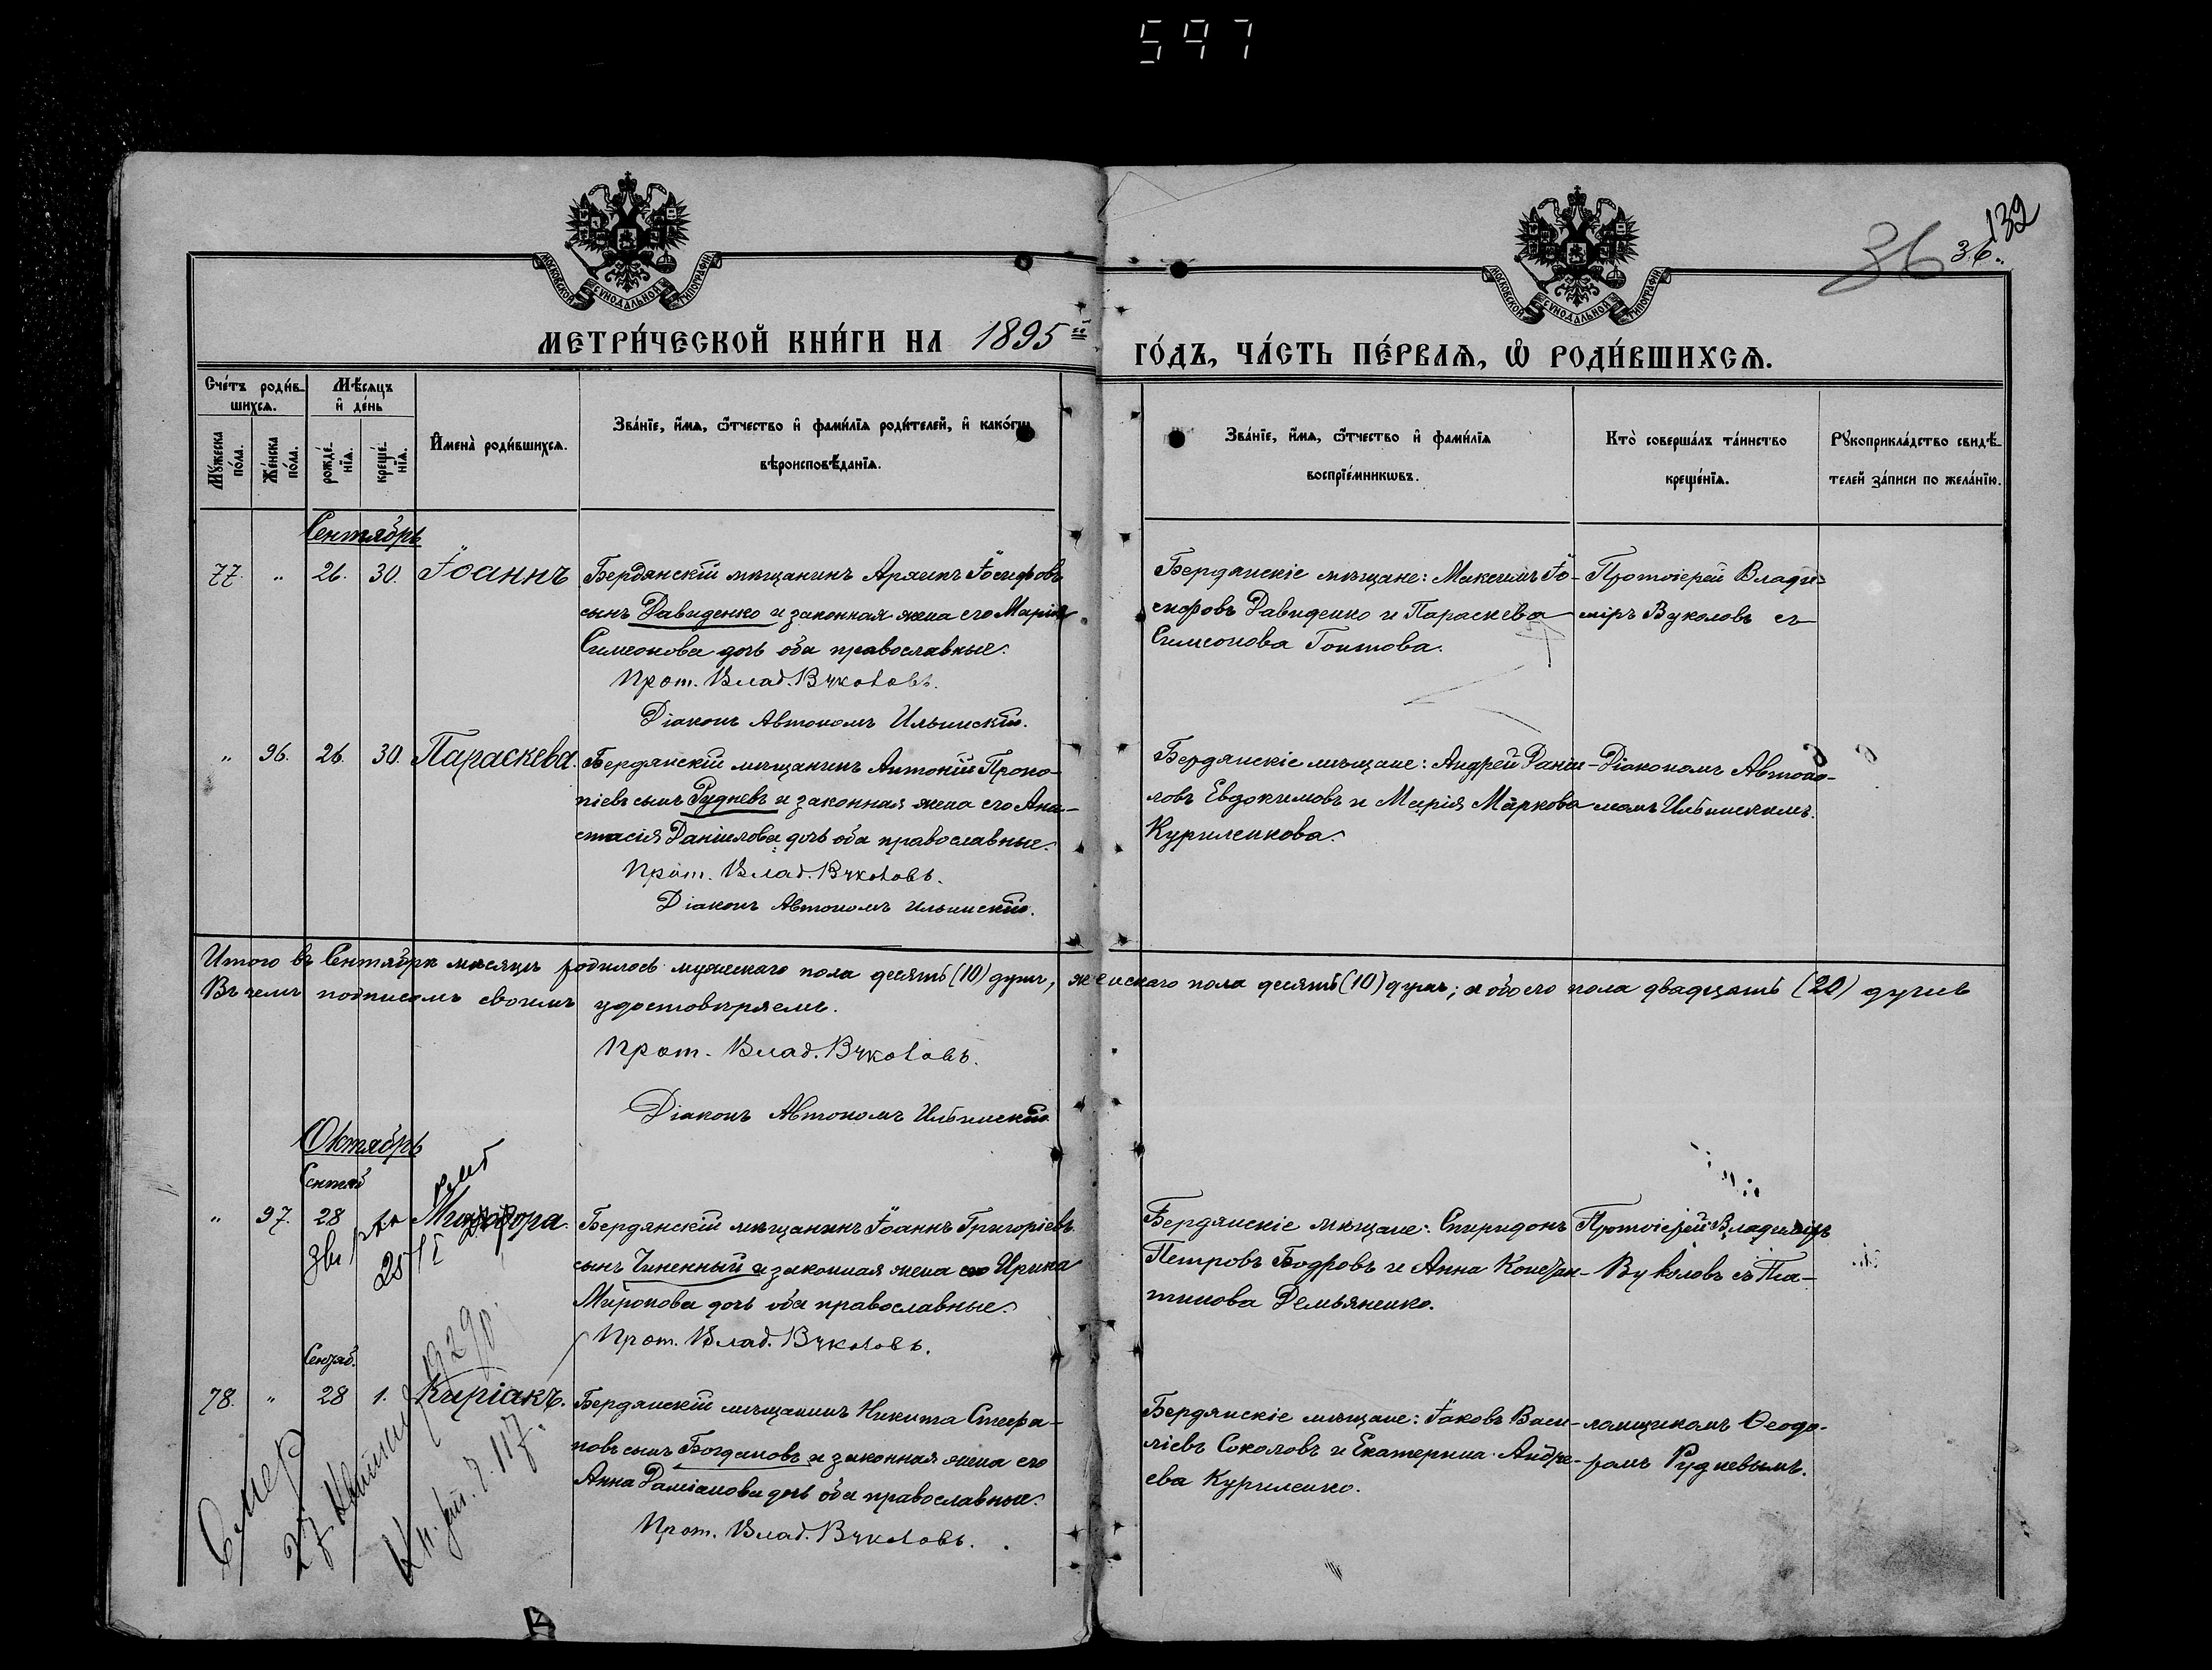 597
132
36
36.
МОСКОВСКОЙ СѴНОДАЛЬНОЙ ТИПОГРАФІИ
МОСКОВСКОЙ СѴНОДАЛЬНОЙ ТИПОГРАФІИ
МЕТРИ́ЧЕСКОЙ КНИ́ГИ НА 1895 ый
ГО́ДЪ, ЧА́СТЬ ПЕ́РВАѦ, Ѡ҆ РОДИ́ВШИХСѦ.
Сче́тъ роди́в-
шихсѧ.
Мѣ́сѧцъ
и҆ де́нь
Мꙋ́жеска
по́ла.
Же́нска
по́ла.
рожде́-
нїѧ.
креще́-
нїѧ.
И҆мена̀ роди́вшихсѧ.
Зва́нїе, и҆́мѧ, ѻ҆́тчество и҆ фами́лїѧ роди́телей, и҆ како́гѡ
вѣроисповѣ́данїѧ.
Зва́нїе, и҆́мѧ, ѻ҆́тчество и҆ фами́лїѧ
воспрїе́мникѡвъ.
Кто̀ соверша́лъ та́инство
креще́нїѧ.
Рꙋкоприкла́дство свидѣ́-
телей за́писи по жела́нїю.
Сентябрь
77. „ 26. 30. Іоаннъ
Бердянскій мѣщанинъ Іосифовъ
сынъ Давиденко и законная жена его Марія
Симеонова дочь оба православные.
Прот. Влад. Вуколовъ.
Діаконъ Автономъ Ильинскій.
Бердянскіе мѣщане: Максимъ Іо-
сифовъ Давиденко и Параскева
Симеонова
Протоіерей Влади-
міръ Вуколовъ съ
„ 96. 26. 30. Параскева.
Бердянскій мѣщанинъ Антоній Проко-
піевъ сынъ Рудневъ и законная жена его Ана-
стасія Даніилова дочь оба православные.
Прот. Влад. Вуколовъ.
Діаконъ Автономъ Ильинскій.
Бердянскіе мѣщане: Андрей Дани-
ловъ Евдокимовъ и Марія Маркова
Куриленкова.
Діакономъ Автоно-
момъ Ильинскимъ.
Итого въ Сентябрѣ мѣсяцѣ родилось мужескаго пола десять (10) душъ, женскаго пола десять (10) душъ; а обоего пола двадцать (20) душъ
Въ чемъ подписомъ своимъ удостовѣряемъ.
Прот. Влад. Вуколовъ.
Діаконъ Автономъ Ильинскій
Октябрь
Сентяб
„ 97. 28
Бердянскій мѣщанинъ Іоаннъ Григоріевъ
сынъ Чиненный и законная жена его Ирина
Миронова дочь оба православные.
Прот. Влад. Вуколовъ.
Бердянскіе мѣщане: Спиридонъ
Петровъ Бодровъ и Анна Констан-
тинова Демьяненко.
Протоіерей Владиміръ
Вуколовъ съ Пса-
Сентяб.
78. „ 28 1. Киріакъ.
Бердянскій мѣщанинъ Никита Стефа-
новъ сынъ Богдановъ и законная жена его
Анна Даміанова дочь оба православные.
Прот. Влад. Вуколовъ.
Бердянскіе мѣщане: Іаковъ Васи-
ліевъ Соколовъ и Екатерина Андре-
ева Куриленко.
ломщикомъ Ѳеодо-
ромъ Рудневымъ.
Умер
27
1929